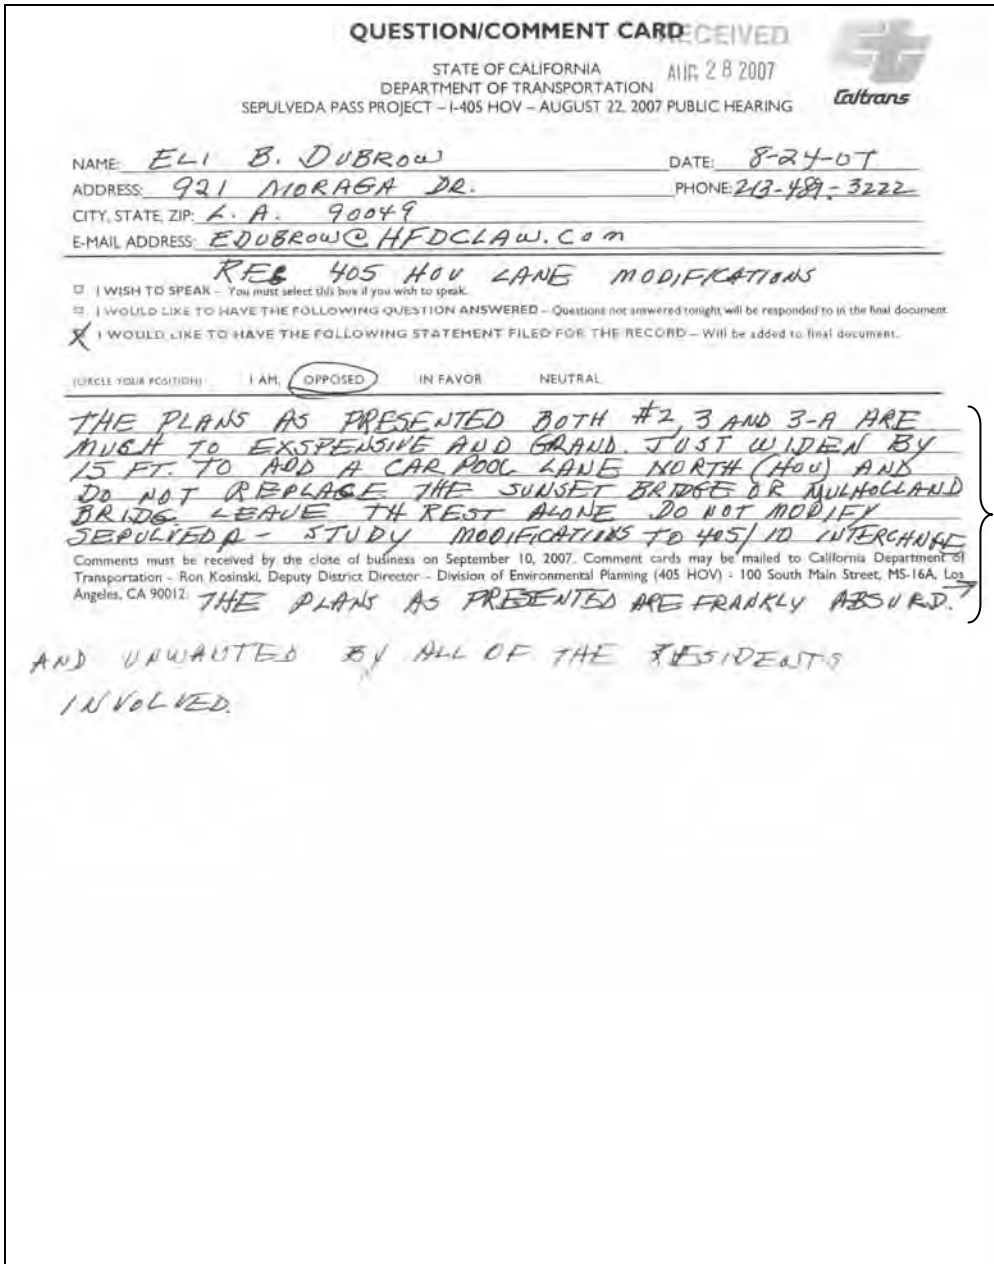 QUESTION/COMMENT CARD
RECEIVED
AUG 28 2007
STATE OF CALIFORNIA
DEPARTMENT OF TRANSPORTATION
SEPULVEDA PASS PROJECT – I-405 HOV – AUGUST 22, 2007 PUBLIC HEARING
Caltrans
NAME: ELI B. DUBROW DATE: 8-24-07
ADDRESS: 921 MORAGA DR. PHONE: 213-489-3222
CITY, STATE, ZIP: L.A. 90049
E-MAIL ADDRESS: EDUBROW@HFDCLAW.COM
RE: 405 HOV LANE MODIFICATIONS
I WISH TO SPEAK – You must select this box if you wish to speak.
I WOULD LIKE TO HAVE THE FOLLOWING QUESTION ANSWERED – Questions not answered tonight will be responded to in the final document.
X I WOULD LIKE TO HAVE THE FOLLOWING STATEMENT FILED FOR THE RECORD – Will be added to final document.
(CIRCLE YOUR POSITION) I AM: OPPOSED IN FAVOR NEUTRAL
THE PLANS AS PRESENTED BOTH #2, 3 AND 3-A ARE
MUCH TO EXSPENSIVE AND GRAND. JUST WIDEN BY
15 FT. TO ADD A CAR POOL LANE NORTH (HOV) AND
DO NOT REPLACE THE SUNSET BRIDGE OR MULHOLLAND
BRIDG. LEAVE TH REST ALONE DO NOT MODIFY
SEPULVEDA - STUDY MODIFICATIONS TO 405/10 INTERCHNGE
Comments must be received by the close of business on September 10, 2007. Comment cards may be mailed to California Department of
Transportation - Ron Kosinski, Deputy District Director - Division of Environmental Planning (405 HOV) - 100 South Main Street, MS-16A, Los
Angeles, CA 90012. THE PLANS AS PRESENTED ARE FRANKLY ABSURD.
AND UNWANTED BY ALL OF THE RESIDENTS
INVOLVED.